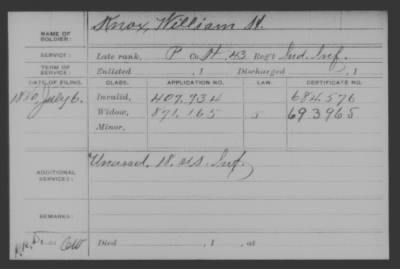 NAME OF SOLDIER: Knox, William H.
SERVICE: Late rank, P Co. H 43 Reg't Ind. Inf.
TERM OF SERVICE: Enlisted , 1 Discharged , 1
DATE OF FILING. CLASS. APPLICATION NO. LAW. CERTIFICATE NO.
1880, July 6. Invalid, 407.934 684.576
Widow, 871.165 S 693965
Minor,
ADDITIONAL SERVICES: Unassd. 18. U.S. Inf.
REMARKS:
Died , 1 , at